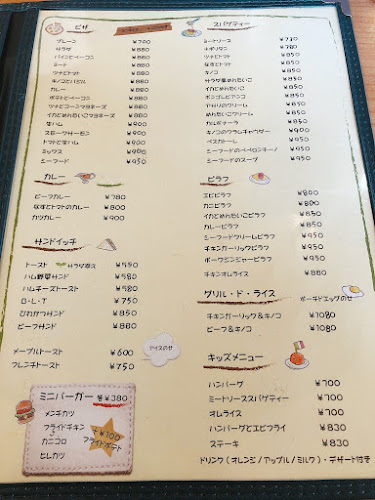 ピザ
プレーン ¥700
サラダ ¥880
パイン&ベーコン ¥880
ミート ¥880
ツナ&トマト ¥880
キノコ&バジル ¥880
カレー ¥880
ポテト&ベーコン ¥880
ツナ&コーンマヨネーズ ¥880
イカとめんたいこマヨネーズ ¥880
生ハム ¥900
スモークサーモン ¥900
トマトと生ハム ¥900
ミックス ¥900
シーフード ¥950
カレー
ビーフカレー ¥780
なすとトマトのカレー ¥800
カツカレー ¥900
サンドイッチ
トースト サラダ添え ¥550
ハム野菜サンド ¥580
ハムチーズトースト ¥580
B・L・T ¥750
ひれかつサンド ¥850
ビーフサンド ¥880
アイスのせ
メープルトースト ¥600
フレンチトースト ¥750
ミニバーガー 各¥380
メンチカツ
フライドチキン
カニコロ
ヒレカツ
+¥100
フライドポテト
スパゲティー
ミートソース ¥730
ナポリタン ¥780
ツナとトマト ¥850
なすとトマト ¥850
キノコ ¥850
サラダ風めんたいこ ¥850
イカとめんたいこ ¥850
ボンゴレビアンコ ¥850
アサリのクリーム ¥850
めんたいこクリーム ¥850
カルボナーラ ¥850
キノコのクラムチャウダー ¥900
ペスカトーレ ¥950
シーフードのペペロンチーノ ¥950
シーフードのスープ ¥950
ピラフ
エビピラフ ¥800
カニピラフ ¥800
イカとめんたいピラフ ¥850
カレーピラフ ¥850
シーフードクリームピラフ ¥950
チキンガーリックピラフ ¥950
ポークジンジャーピラフ ¥950
チキンオムライス ¥880
グリル・ド・ライス ポーチドエッグのせ
チキンガーリック&キノコ ¥1080
ビーフ&キノコ ¥1080
キッズメニュー
ハンバーグ ¥700
ミートソーススパゲティー ¥700
オムライス ¥700
ハンバーグとエビフライ ¥830
ステーキ ¥830
ドリンク(オレンジ/アップル/ミルク)・デザート付き